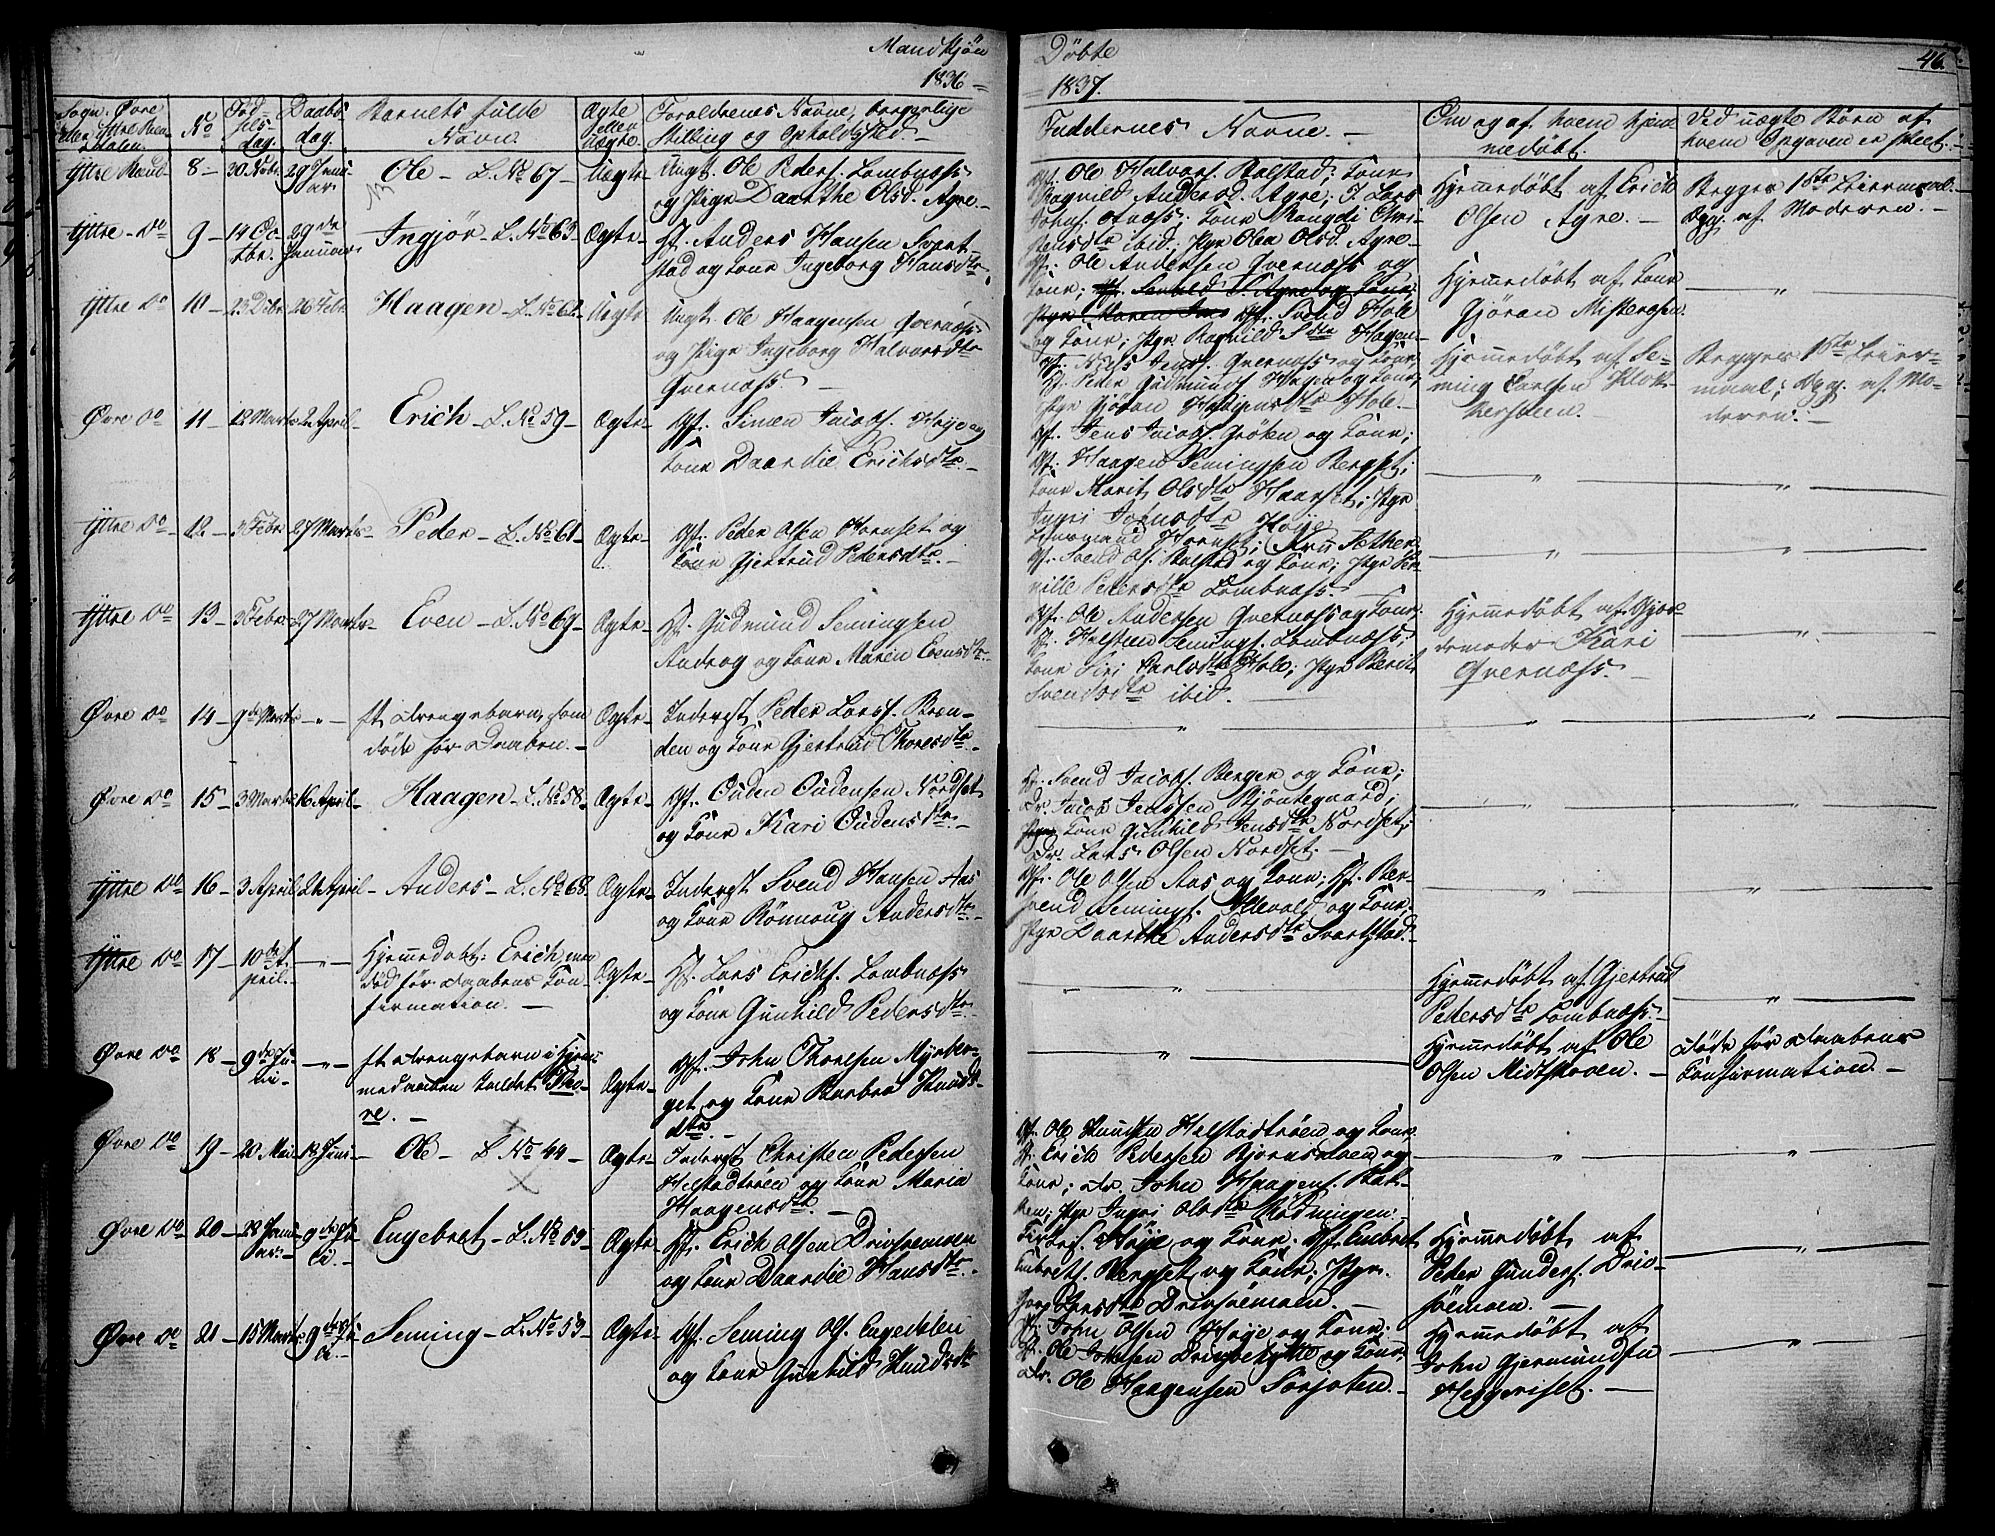 Mandkjøn
1836 =
Döbte
= 1837.
46.
Sogn. Øvre
eller Yttre Ren-
dalen.
No
Föd-
sels-
dag.
Daabs
dag.
Barnets fulde
Navn.
Ægte
eller
Uægte
Forældrenes Navne, borgerlige
Stilling og Opholdsted.
Faddernes Navne. —
Om og af hvem hjem-
medöbt.
Ved uægte Börn af
hvem Opgaven er skeet.
Yttre Rend-
8 —
30 Nobr.
29 Janu-
ar
Ole — L. No 67 —
Uægte
Ungk. Ole Peders. Lombnæss
og Pige Daarthe Olsd. Agre. —
Gf. Ole Halvors. Balstad; Kone
Ragnild Andersd. Agre; I. Lars
Johns. Aaess; Kone Rangdi Chri-
stensdtr ibid; Pge Olea Olsd. Agre —
Hjemmedöbt af Erich
Olsen Agre. —
Begges 1ste Leiermaal.
Opg. af Moderen —
Yttre — do
9 —
14 Oc-
tbr.
29de
Januar
Ingjør — L. No 63 —
Ægte
Hf. Anders Hansen Svart-
stad og Kone Ingeborg Hansdtr.
Gf. Ole Andersen Qvernæss og
Kone;
Gf. Svend Hole
og Kone; Pge Ragnild Sdtr Hagen —
Hjemmedöbt af Kone
Gjöran Misterosen
"
Yttre do
10 —
23 Dcbr
26 Febr.
Haagen — L. No 62 —
Uægte
Ungk. Ole Haagensen Qvernæss
og Pige Ingeborg Halvorsdtr
Qvernæss —
Gf. Nils Jens. Qvernæss og Kone,
Hf. Peder Gudmunds. Hagen og Kone,
Pge Gjöran Haagensdtr Hole —
Hjemmedöbt af Se-
ming Carlsen Klok-
kersteen. —
Begges 1ste Leier-
maal; Opg. af Mo-
deren. —
Øvre do
11 —
12 Marts
2 April —
Erich — L. No 59 —
Ægte —
Gf. Simen Jacobs. Høye og
Kone Daardie Erichsdtr. —
Gf. Jens Jacobs. Gröten og Kone;
Gf. Haagen Semingsen Bergset;
Kone Marit Olsdtr Haarset; Pge
Ingri Johnsdtr Høye
"
"
Yttre do —
12. —
3 Febr
27 Marts —
Peder — L. No 61 —
Ægte —
Gf. Peder Olsen Hornset og
Kone Gjertrud Pedersdtr. —
Hornset; Kru Sæther
Gf. Svend Ols. Balstad og Kone; Pge
Pedersdtr Lombnæss —
"
"
Yttre do
13 —
3 Febr.
27 Marts —
Even — L. No 69 —
Ægte —
Hf. Gudmund Semingsen
Androg og Kone Maren Evensdtr.
Gf. Ole Andersen Qvernæss og Kone.
Hf. Halsten Semings. Lombnæss;
Kone Siri Carlsdtr Hole; Pge Berit
Svendsdtr ibid. —
Hjemmedöbt af Gjor-
demoder Kari
Qvernæss. —
"
Øvre do
14 —
9de Marts
— " —
Et Drengebarn, som
döde før Daaben. —
Ægte —
Inderst Peder Larss. Bren-
den og Kone Gjertrud Thoresdtr. —
"
"
"
Øvre do
15 —
3 Marts
16 April —
Haagen — L. No 58 —
Ægte —
Gf. Ouden Oudensen Nordset
og Kone Kari Oudensdtr. —
Hf. Svend Jacobs. Berger og Kone;
Dr. Jacob Jenssen Bjöntegaard;
Kone Gunhild Jensdtr Nordset;
Dr. Lars Olsen Nordset. —
"
"
Yttre do
16 —
3 April
24 April —
Anders — L. No 68.
Ægte —
Inderst Svend Hansen Aas
og Kone Rönnoug Andersdtr. —
Gf. Ole Olsen Aas og Kone; Hf. Ber-
svend Semings. Illevold og Kone,
Pge Daarthe Andersdtr Svartstad. —
"
"
Yttre do
17 —
10de A-
pril. —
— " —
Hjemmedöbt: Erich, men
död før Daabens Con-
firmation. —
Ægte —
Hf. Lars Erichs. Lombnæss
og Kone Gunhild Pedersdtr. —
"
Hjemmedöbt af Gjertrud
Pedersdtr Lombnæss. —
"
Øvre do
18 —
9de Ju-
lii. —
— " —
Et Drengebarn i Hjem-
medaaben kaldet Tho-
re. —
Ægte —
Gf. John Thoresen Myrber-
get og Kone Barbra Knuds-
dtr. —
"
Hjemmedöbt af Ole
Olsen Midtskoven. —
Döde før Daabens
Confirmation. —
Øvre do
19 —
20 Mai
18 Juni —
Ole — L. No 44 —
Ægte —
Inderst Christen Pedersen
Helstadtröen og Kone Maria
Haagensdtr. —
Gf. Ole Knudsen Helstadtröen og Kone.
Hf. Erich Pedersen Bjornsmoen og
Kone; Dr. John Haagens. Bak-
ken; Pge Ingri Olsdtr Mödningen. —
"
"
Øvre do
20 —
28 Janu-
ar. —
9de Ju-
li. —
Engebret — L. No 53 —
Ægte —
Hf. Erich Olsen Drivsremoen
og Kone Daardie Hansdtr. —
Høye og Kone. Gf. Embret
Embrets. Bergset og Kone; Pge.
Larsdtr Drivsremoen. —
Hjemmedöbt af
Peder Gunders. Driv-
sremoen. —
"
Øvre do
21 —
15 Marts
9de Ju-
li. —
Seming — L. No 53 —
Ægte —
Gf. Seming Ols. Engedalen
og Kone Gunhild Knudsdtr
Hf. John Olsen Høye og Kone.
Hf. Ole Johnsen Drivsrehytte og Kone,
Dr. Ole Haagensen Sorsoten. —
Hjemmedöbt af
John Gjermundsen
Heggeriset. —
"